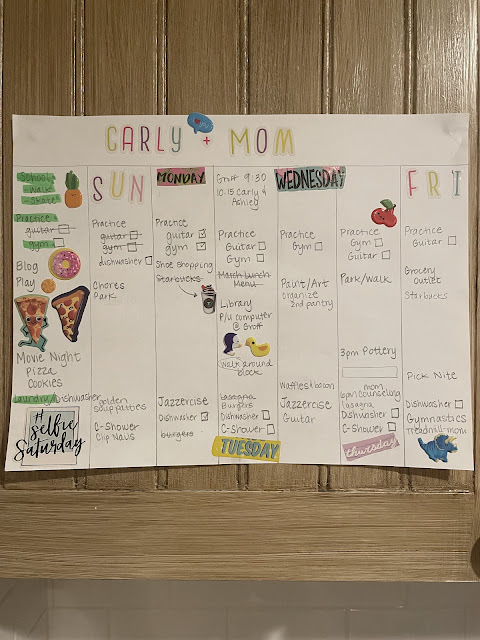 CARLY + MOM
School
walk
skate
Practice
guitar
gym
Blog
Play
Movie Night
Pizza
Cookies
Laundry/Dishwasher
#selfie
Saturday
SUN
Practice
guitar
gym
dishwasher
Chores
Park
Golden
soup patties
C-Shower
Clip Navs
MONDAY
Practice
guitar
gym
Shoe shopping
Starbucks
Jazzercise
Dishwasher
burgers
Groff 9:30
10:15 Carly &
Ashley
Practice
Guitar
Gym
March Lunch
Menu
Library
P/U computer
@ Groff
Walk around
Block
Lasagna
Burgers
Dishwasher
C-Shower
TUESDAY
WEDNESDAY
Practice
Gym
Paint/Art
Organize
2nd pantry
Waffles & bacon
Jazzercise
Guitar
Practice
Gym
Guitar
Park/Walk
3pm Pottery
mom
counseling
lasagna
Dishwasher
C-Shower
thursday
FRI
Practice
Guitar
Grocery
outlet
Starbucks
Pick Nite
Dishwasher
Gymnastics
Treadmill-mom